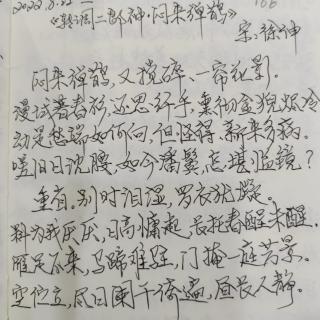 2022.8.22 二
《转调二郎神·闷来弹鹊》
宋.徐伸
闷来弹鹊,又搅碎、一帘花影。
漫试著春衫,还思纤手,熏彻金猊烬冷。
动是愁端如何向,但怪得、新来多病。
嗟旧日沈腰,如今潘鬓,怎堪临镜?
重省,别时泪湿,罗衣犹凝。
料为我厌厌,日高慵起,长托春酲未醒。
雁足不来,马蹄难驻,门掩一庭芳景。
空伫立,尽日阑干倚遍,昼长人静。